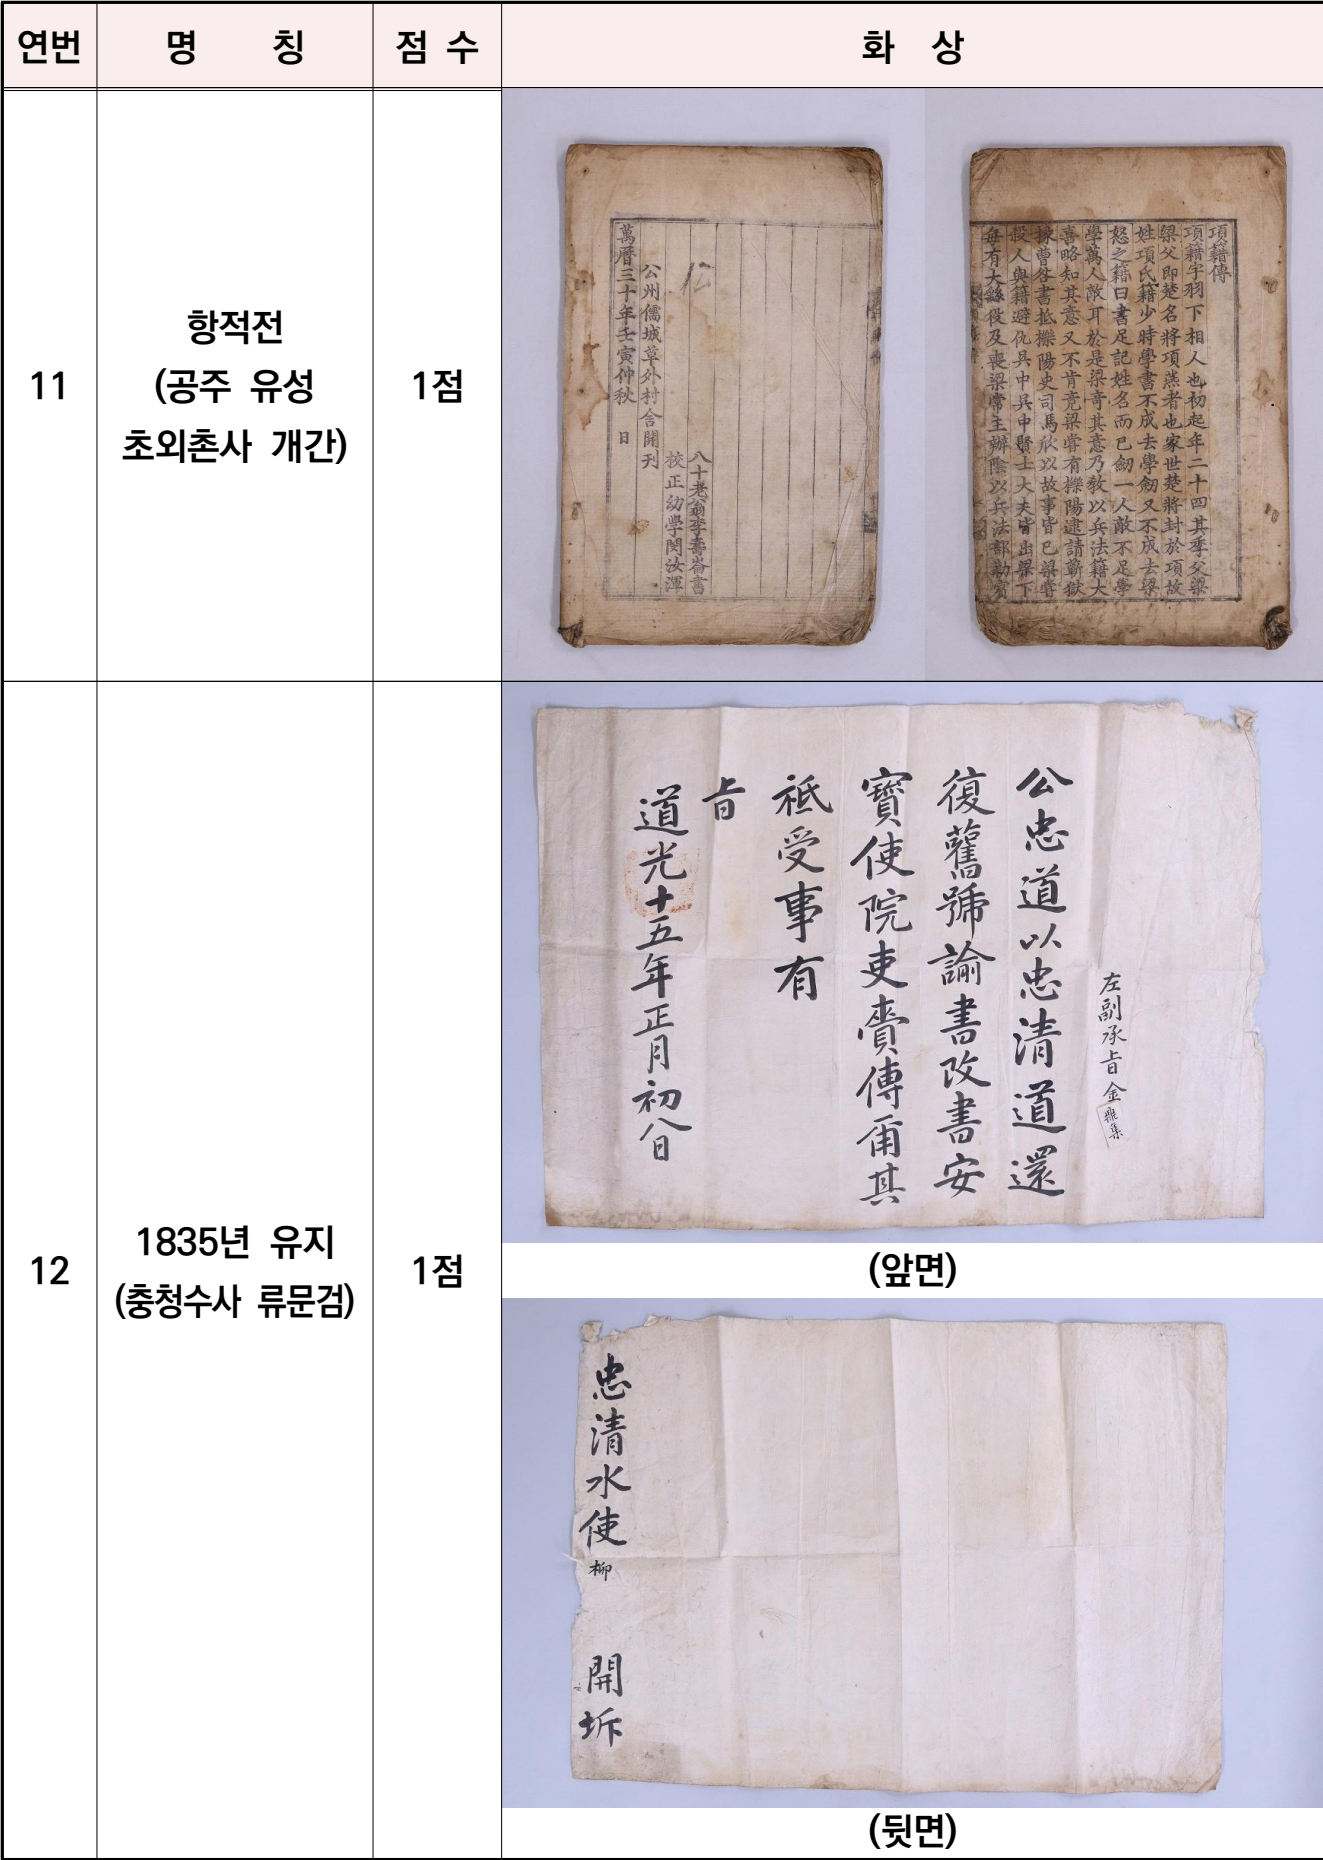 연번 명 칭 점 수 화 상
11
항적전
(공주 유성
초외촌사 개간)
1점
八十老翁李壽崙書
校正幼學閔汝渾
公州儒城草外村舍開刊
萬曆三十年壬寅仲秋 日
項籍傳
項籍字羽下相人也初起年二十四其季父梁
梁父即楚名將項燕者也家世楚將封於項故
姓項氏籍少時學書不成去學劒又不成去梁
怒之籍曰書足記姓名而已劒一人敵不足學
學萬人敵耳於是梁奇其意乃敎以兵法籍大
喜略知其意又不肯竟梁嘗有櫟陽逮請蘄獄
掾曹咎書抵櫟陽史司馬欣以故事皆已梁嘗
殺人與籍避仇吳中吳中賢士大夫皆出梁下
每有大繇役及喪梁常主辦陰以兵法部勒賓
12
1835년 유지
(충청수사 류문검)
1점
左副承旨金鼎集
公忠道以忠清道還
復舊號諭書改書安
寶使院吏賫傳爾其
祗受事有
旨
道光十五年正月初八日
(앞면)
忠清水使柳
開坼
(뒷면)